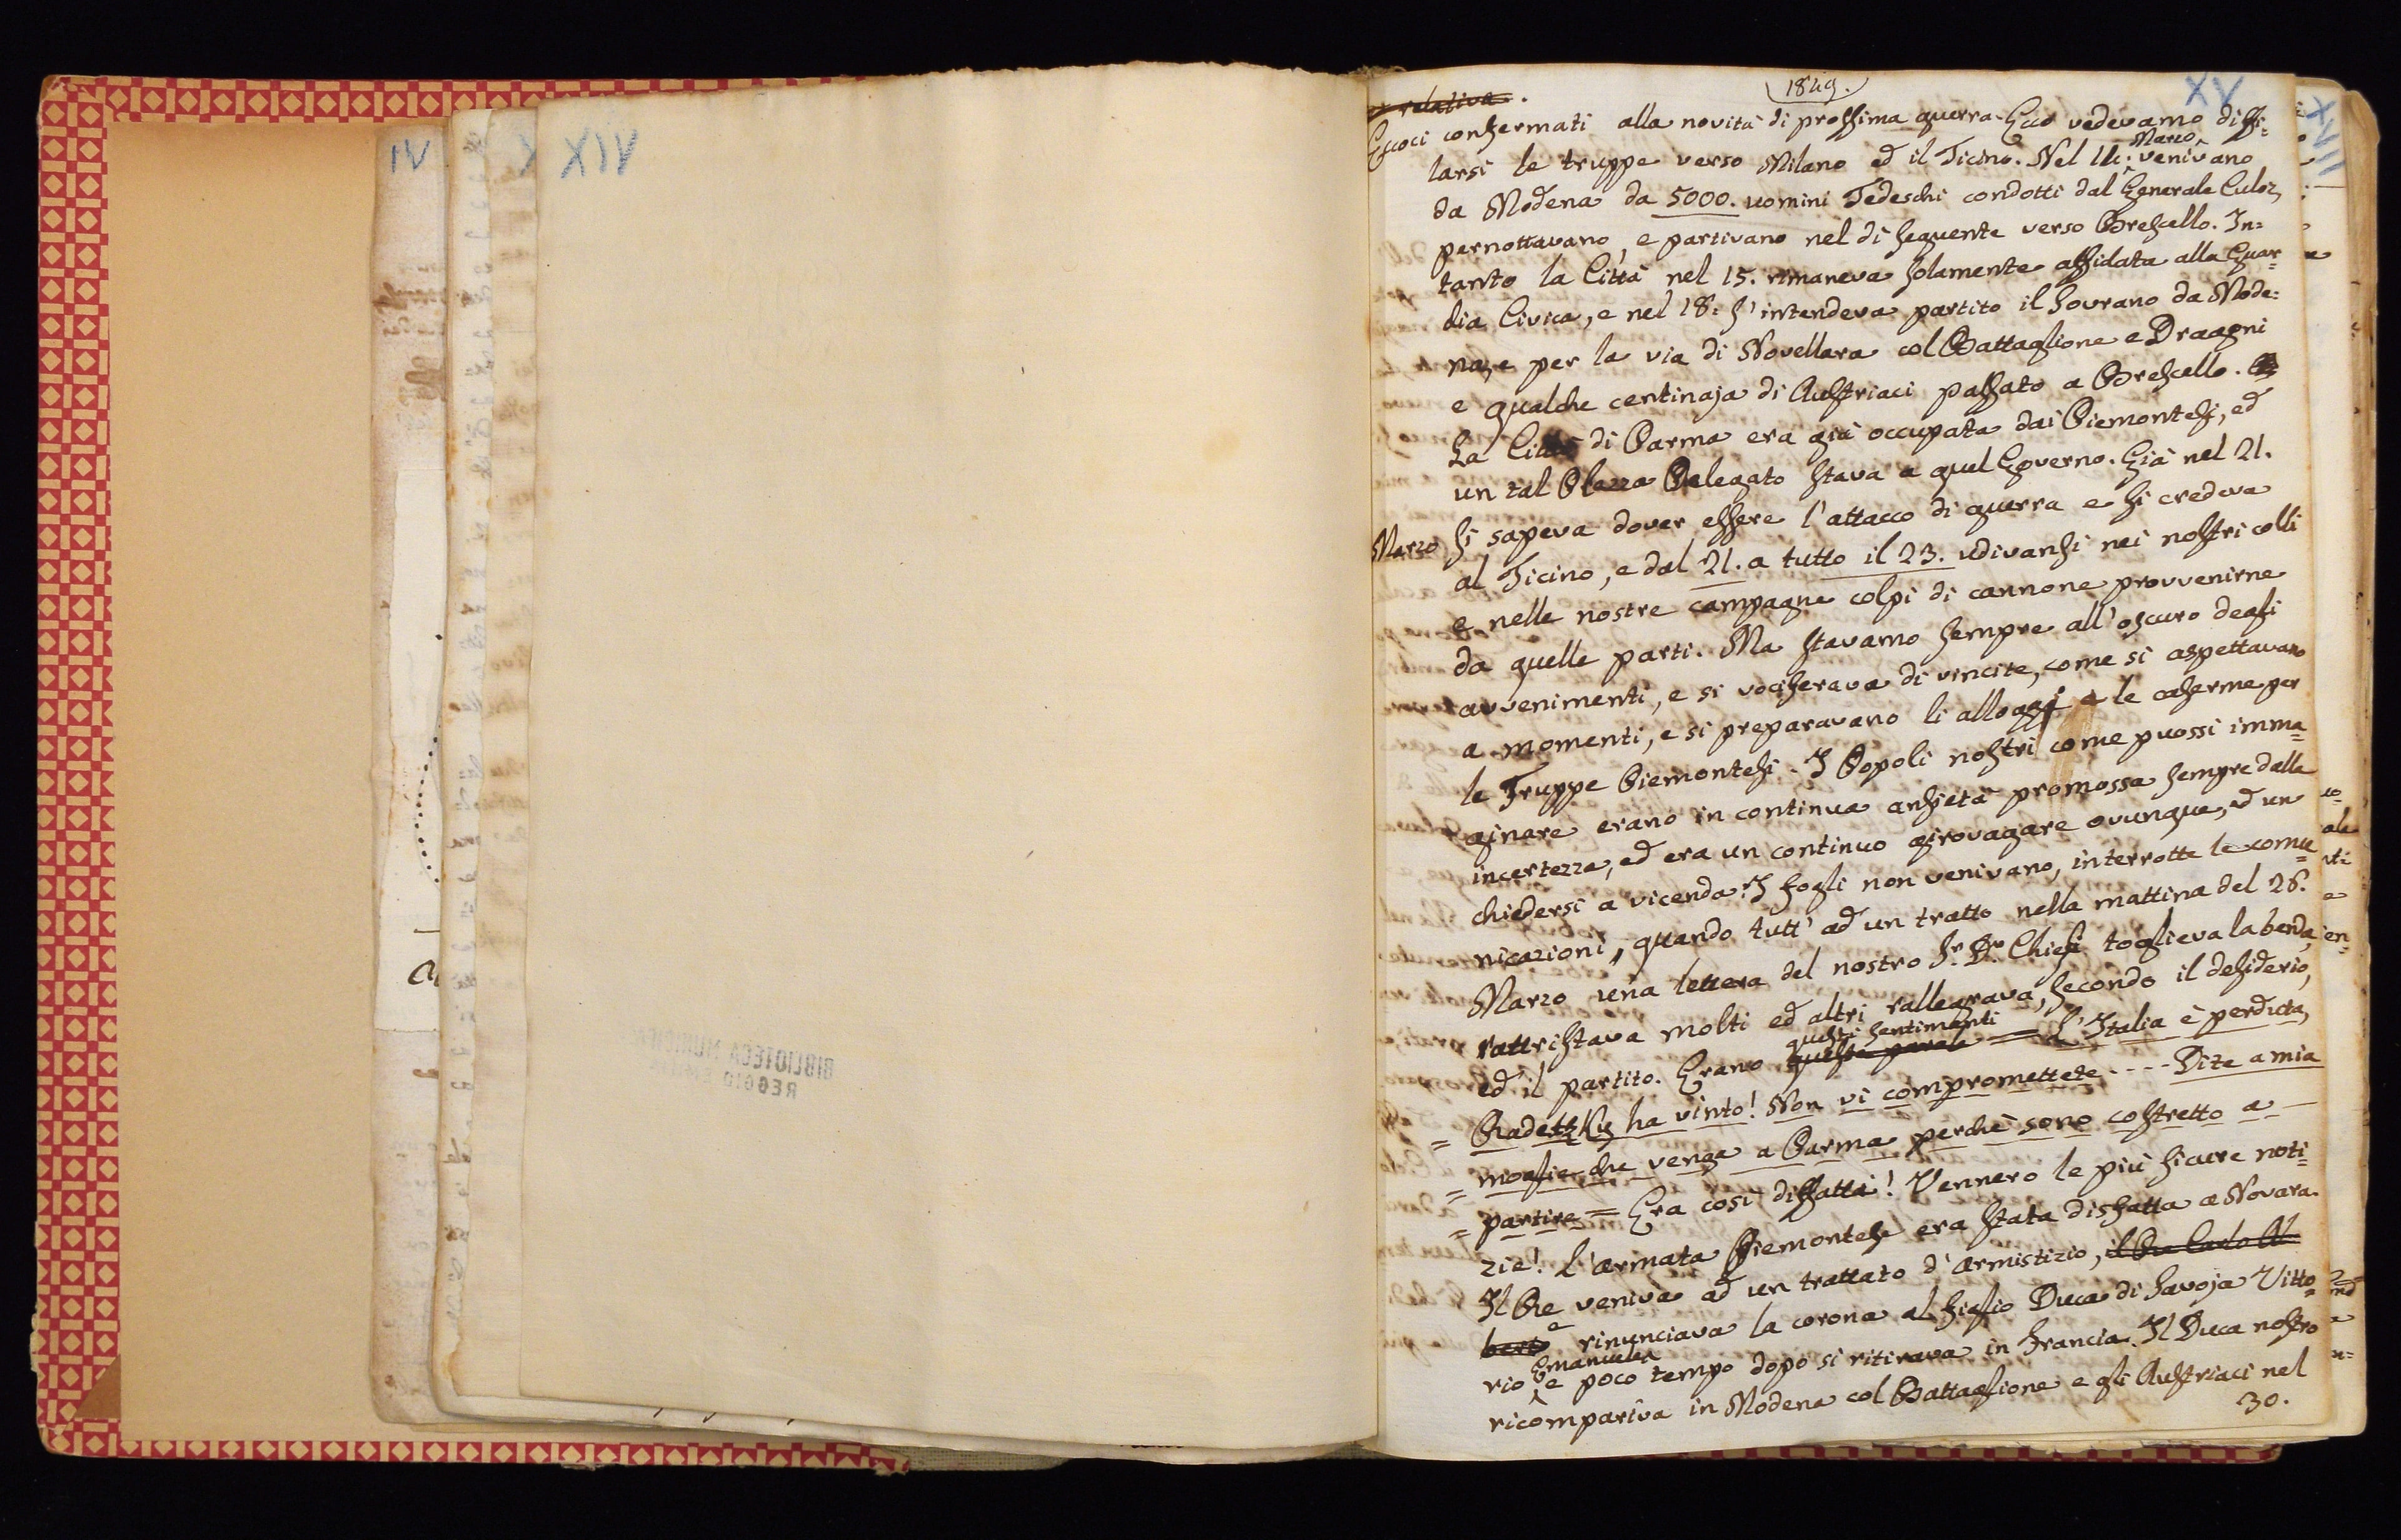 IV
X
XIV
BIBLIOTECA MUNICIP
REGGIO EMILIA
1849.
XV
XVII
relativa.
Eccoci confermati alla novità di prossima guerra. Ecco vedevamo diffi=
larsi le truppe verso Milano ed il Ticino. Nel 14: Marzo venivano
da Modena da 5000. uomini Tedeschi condotti dal Generale Culoz,
pernottavano, e partivano nel dì seguente verso Brescello. In=
tanto la Città nel 15. rimaneva solamente affidata alla Guar=
dia Civica, e nel 18: s'intendeva partito il Sovrano da Mode=
na, e per la via di Novellara col Battaglione e Dragoni
e qualche centinaja di Austriaci passato a Brescello.
La Città di Parma era già occupata dai Piemontesi, ed
un tal Plazza Delegato stava a quel Governo. Già nel 21.
Marzo si sapeva dover essere l'attacco di guerra e si credeva
al Ticino, e dal 21. a tutto il 23. udivansi nei nostri colli
e nelle nostre campagne colpi di cannone provvenirne
da quelle parti. Ma stavamo sempre all'oscuro degli
avvenimenti, e si vociferava di vincite, come si aspettavano
a momenti, e si preparavano li alloggi e le caserme per
le Truppe Piemontesi. I Popoli nostri come puossi imma=
ginare erano in continua ansietà promossa sempre dalla
incertezza, ed era un continuo girovagare ovunque, ed un
chiedersi a vicenda. I fogli non venivano, interrotte le comu=
nicazioni, quando tutt'ad un tratto nella mattina del 26.
Marzo una lettera del nostro Sr. Dr. Chiesi toglieva la benda,
rattristava molti ed altri rallegrava, secondo il desiderio,
ed il partito. Erano queste parole questi sentimenti = L'Italia è perduta,
= Radetzky ha vinto! Non vi compromettete ---- Dite a mia
= moglie che venga a Parma perchè sono costretto a
= partire = Era così diffatti! Vennero le più sicure noti=
zie! L'armata Piemontese era stata disfatta a Novara.
Il Re veniva ad un trattato d'armistizio, il Re Carlo Al
berto e rinunciava la corona al figlio Duca di Savoja Vitto=
rio Emanuele e poco tempo dopo si ritirava in Francia. Il Duca nostro
ricompariva in Modena col Battaglione e gli Austriaci nel
30.